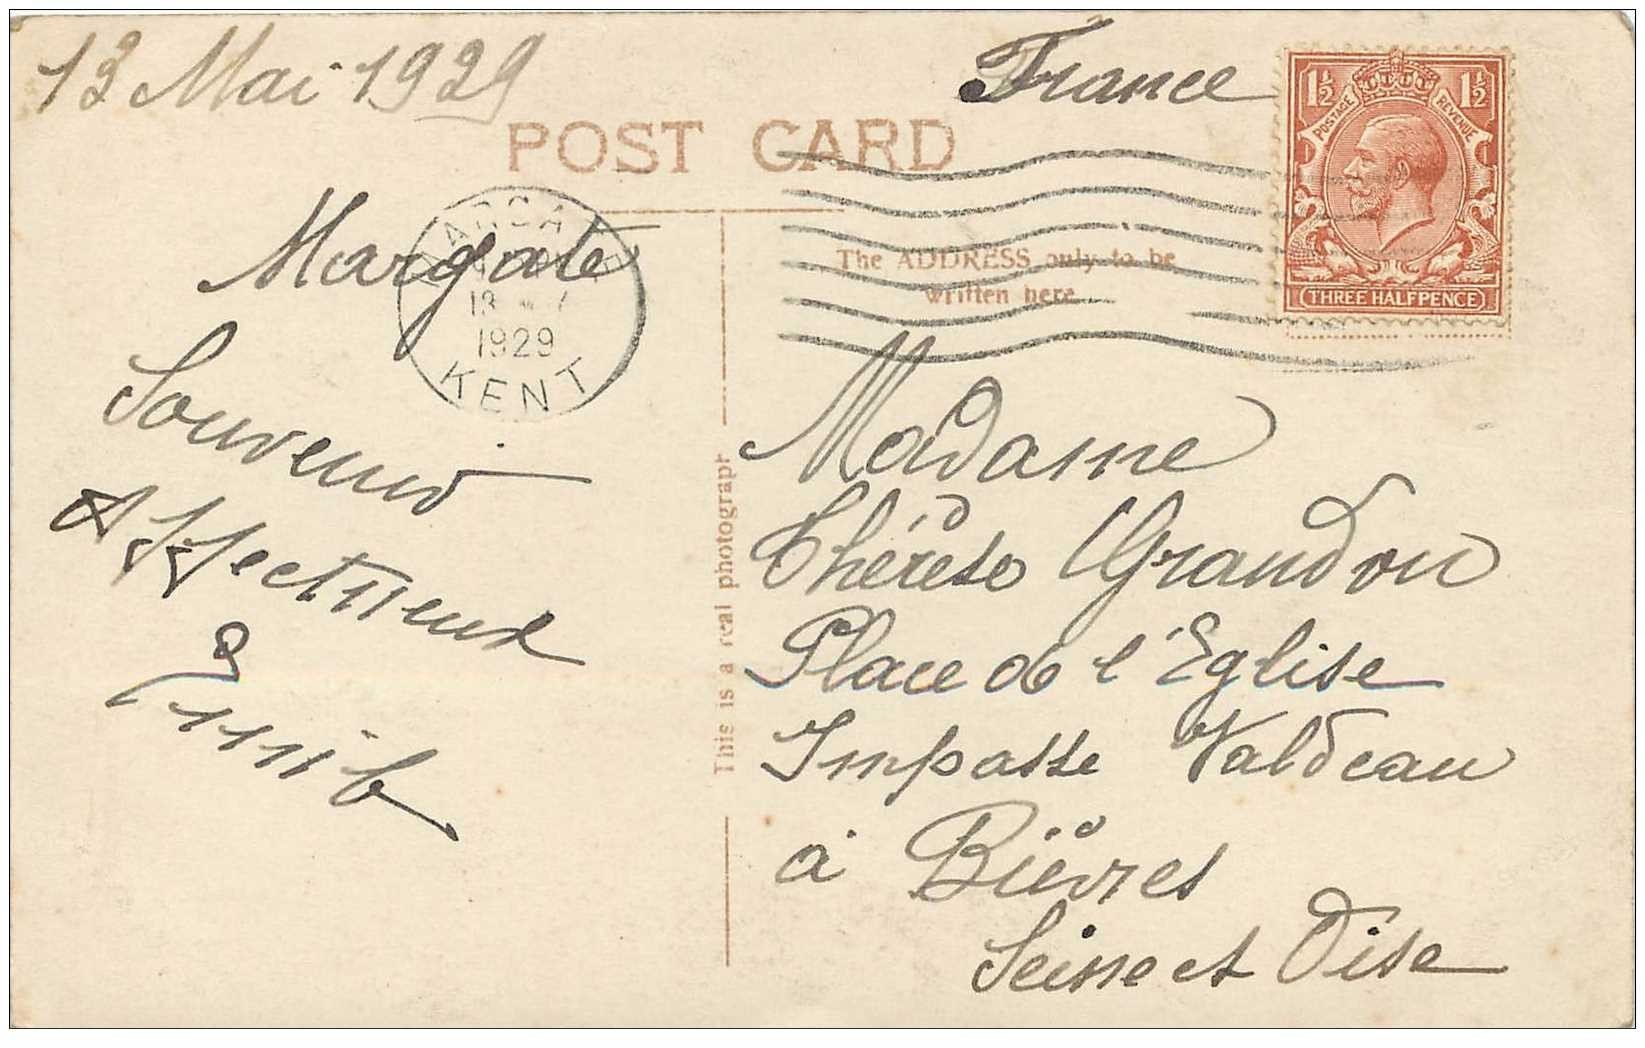 13 Mai 1929
France
POST CARD
1½ 1½
POSTAGE REVENUE
THREE HALFPENCE
MARGATE
13
1929
KENT
The ADDRESS only to be
written here
Margate
Souvenir
Affectueux
This is a real photograph
Madame
Thérèse Grandon
Place de l'Eglise
Impasse Valdeau
à Bièvres
Seine et Oise